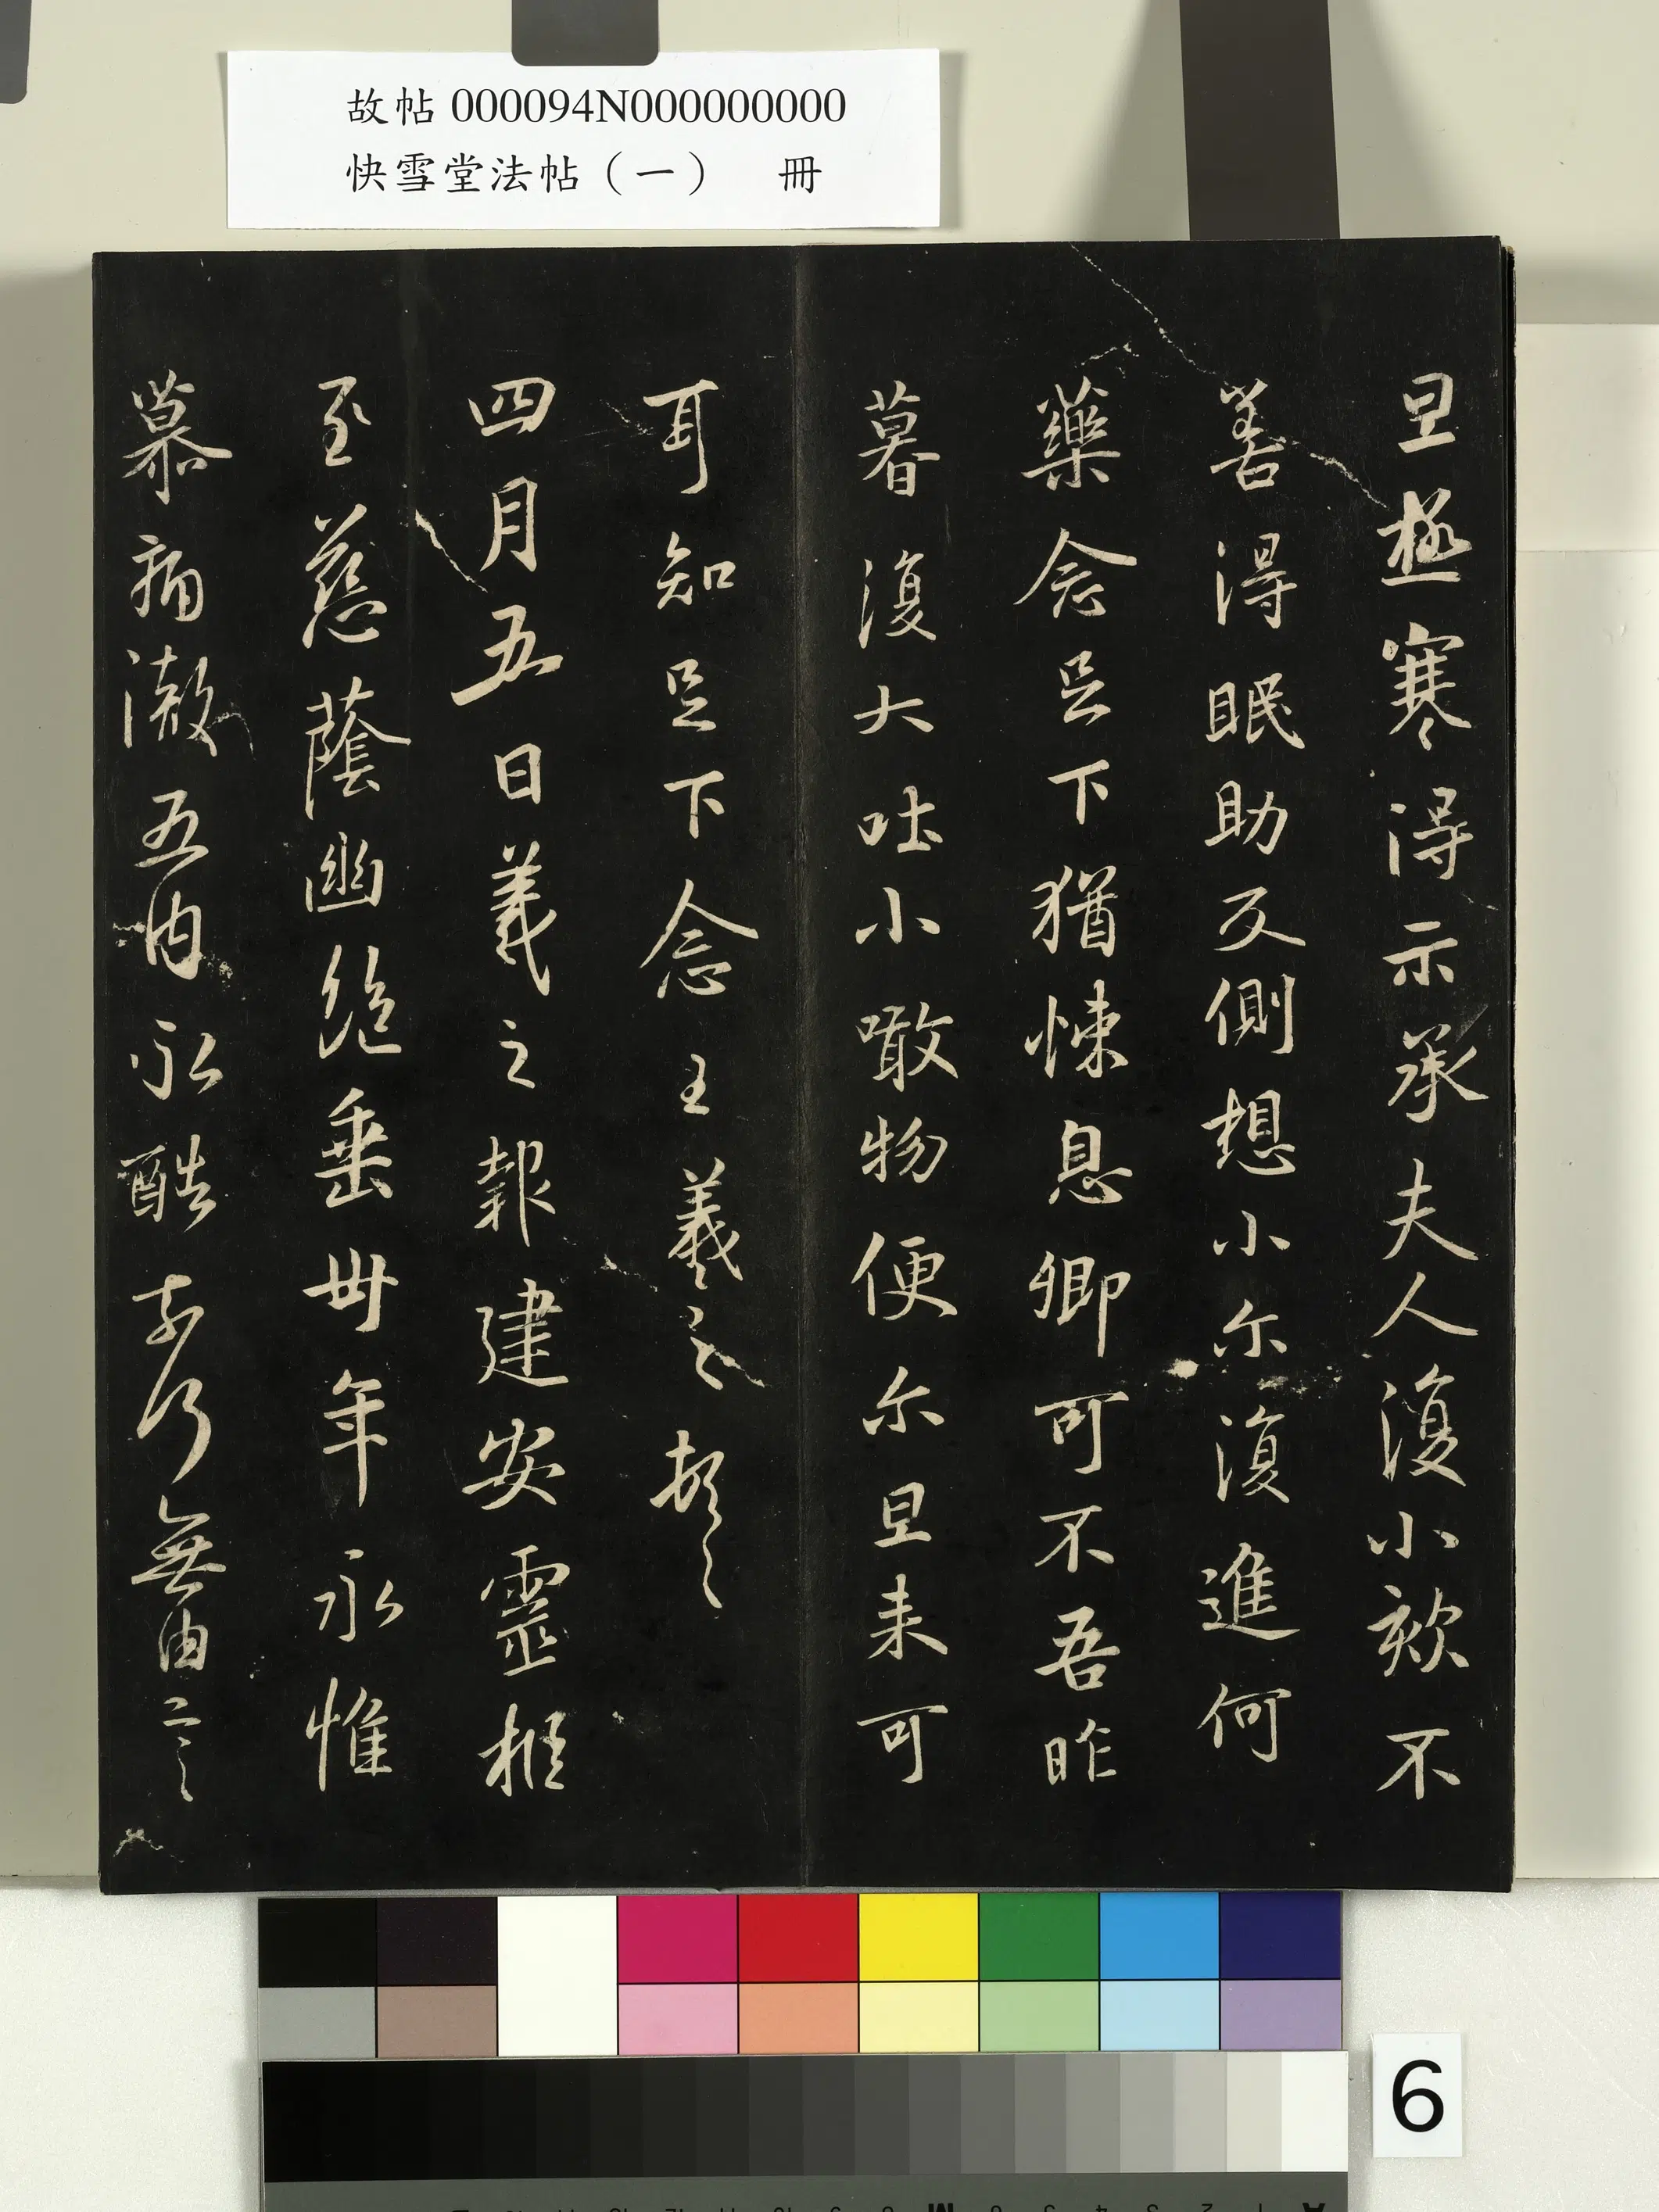 故帖000094N000000000
快雪堂法帖（一） 冊
旦極寒得示承夫人復小欬不
善得眠助反側想小尔復進何
藥念足下猶悚息卿可不吾昨
暮復大吐小噉物便尔旦来可
耳知足下念王羲之頓首
四月五日羲之報建安靈柩
至慈蔭幽絕垂卅年永惟
慕痛澈五內永酷奈何無由言
6